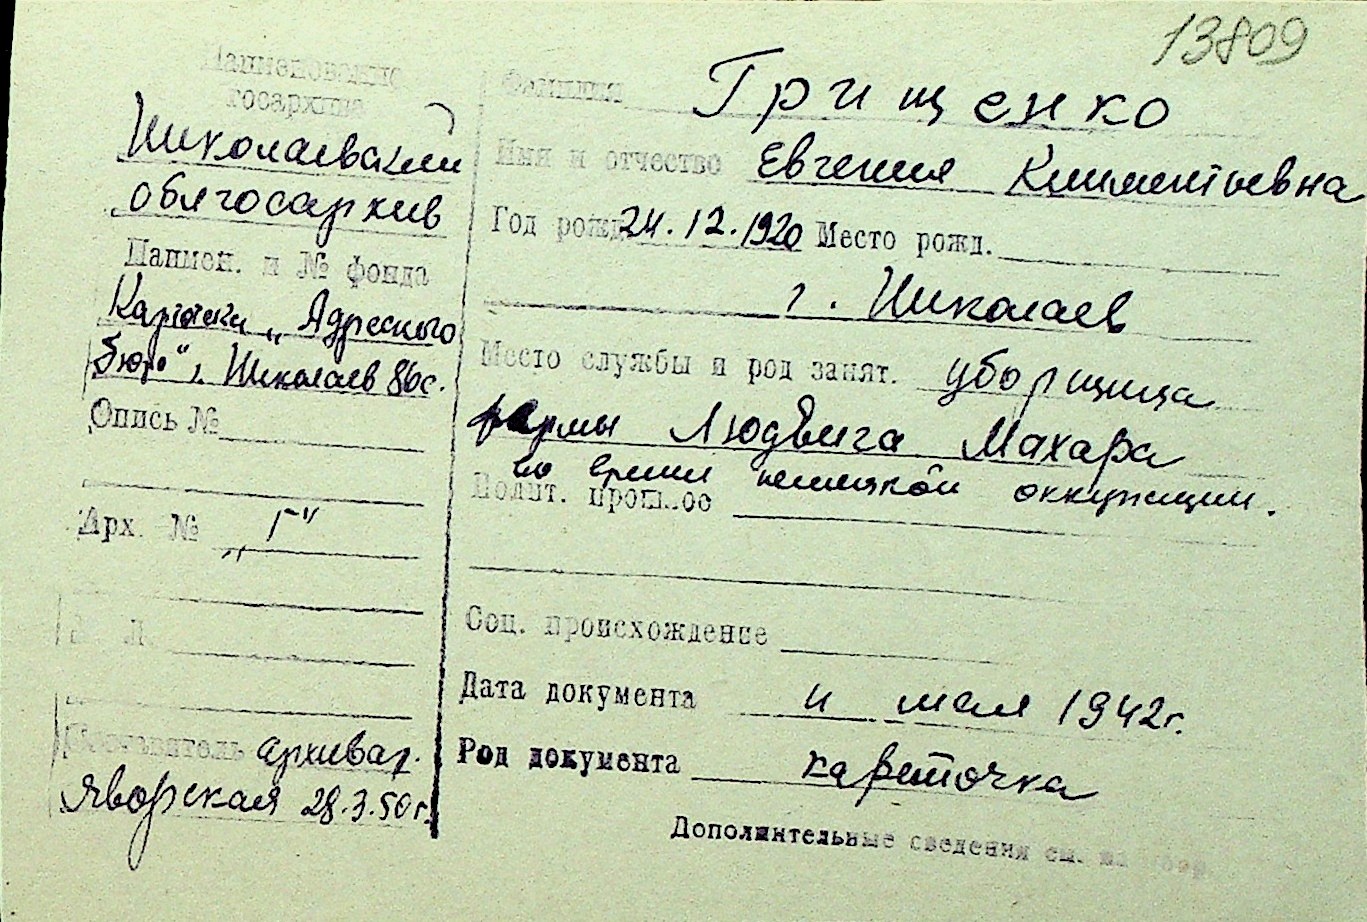 13809
Наименование
госархива
Николаевский
облгосархив
Наимен. и № фонда
Картотеки „Адресного
бюро", г. Николаев 86с.
Опись №
Арх. № „Г"
Л.
Составитель архивар.
Яворская 28.3.50 г.
Фамилия Грищенко
Имя и отчество Евгения Климентьевна
Год рожд. 24.12.1920 Место рожд.
г. Николаев
Место службы и род занят. уборщица
фирмы Людвига Махара
во время немецкой оккупации.
Полит. прошлое
Соц. происхождение
Дата документа 11 мая 1942г.
Род документа карточка
Дополнительные сведения см. на обор.